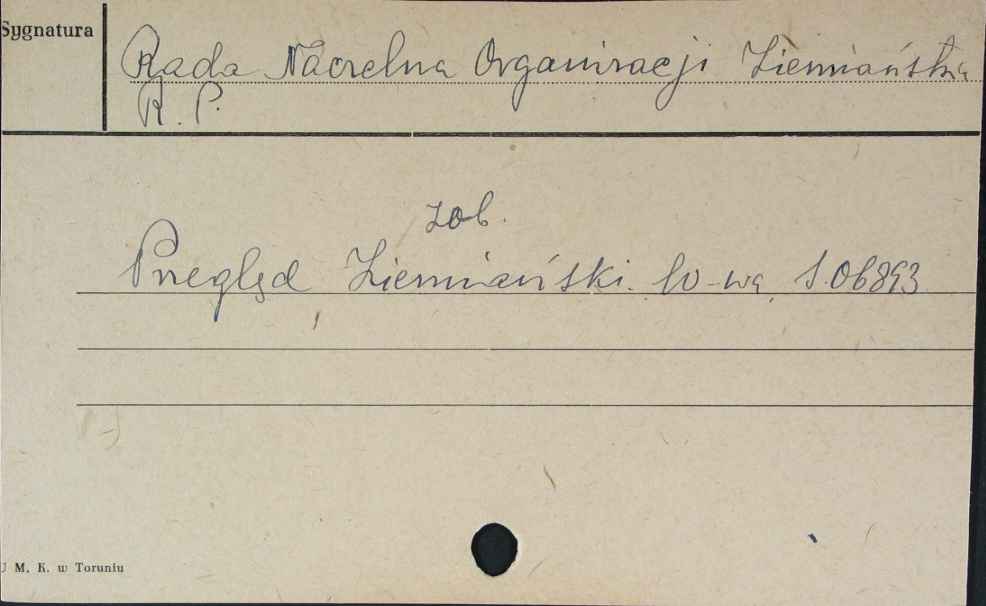 Sygnatura
Rada Naczelna Organizacji Ziemiańska
R. P.
zob.
Przegląd Ziemiański. W-wa, S.06893
U M. K. w Toruniu